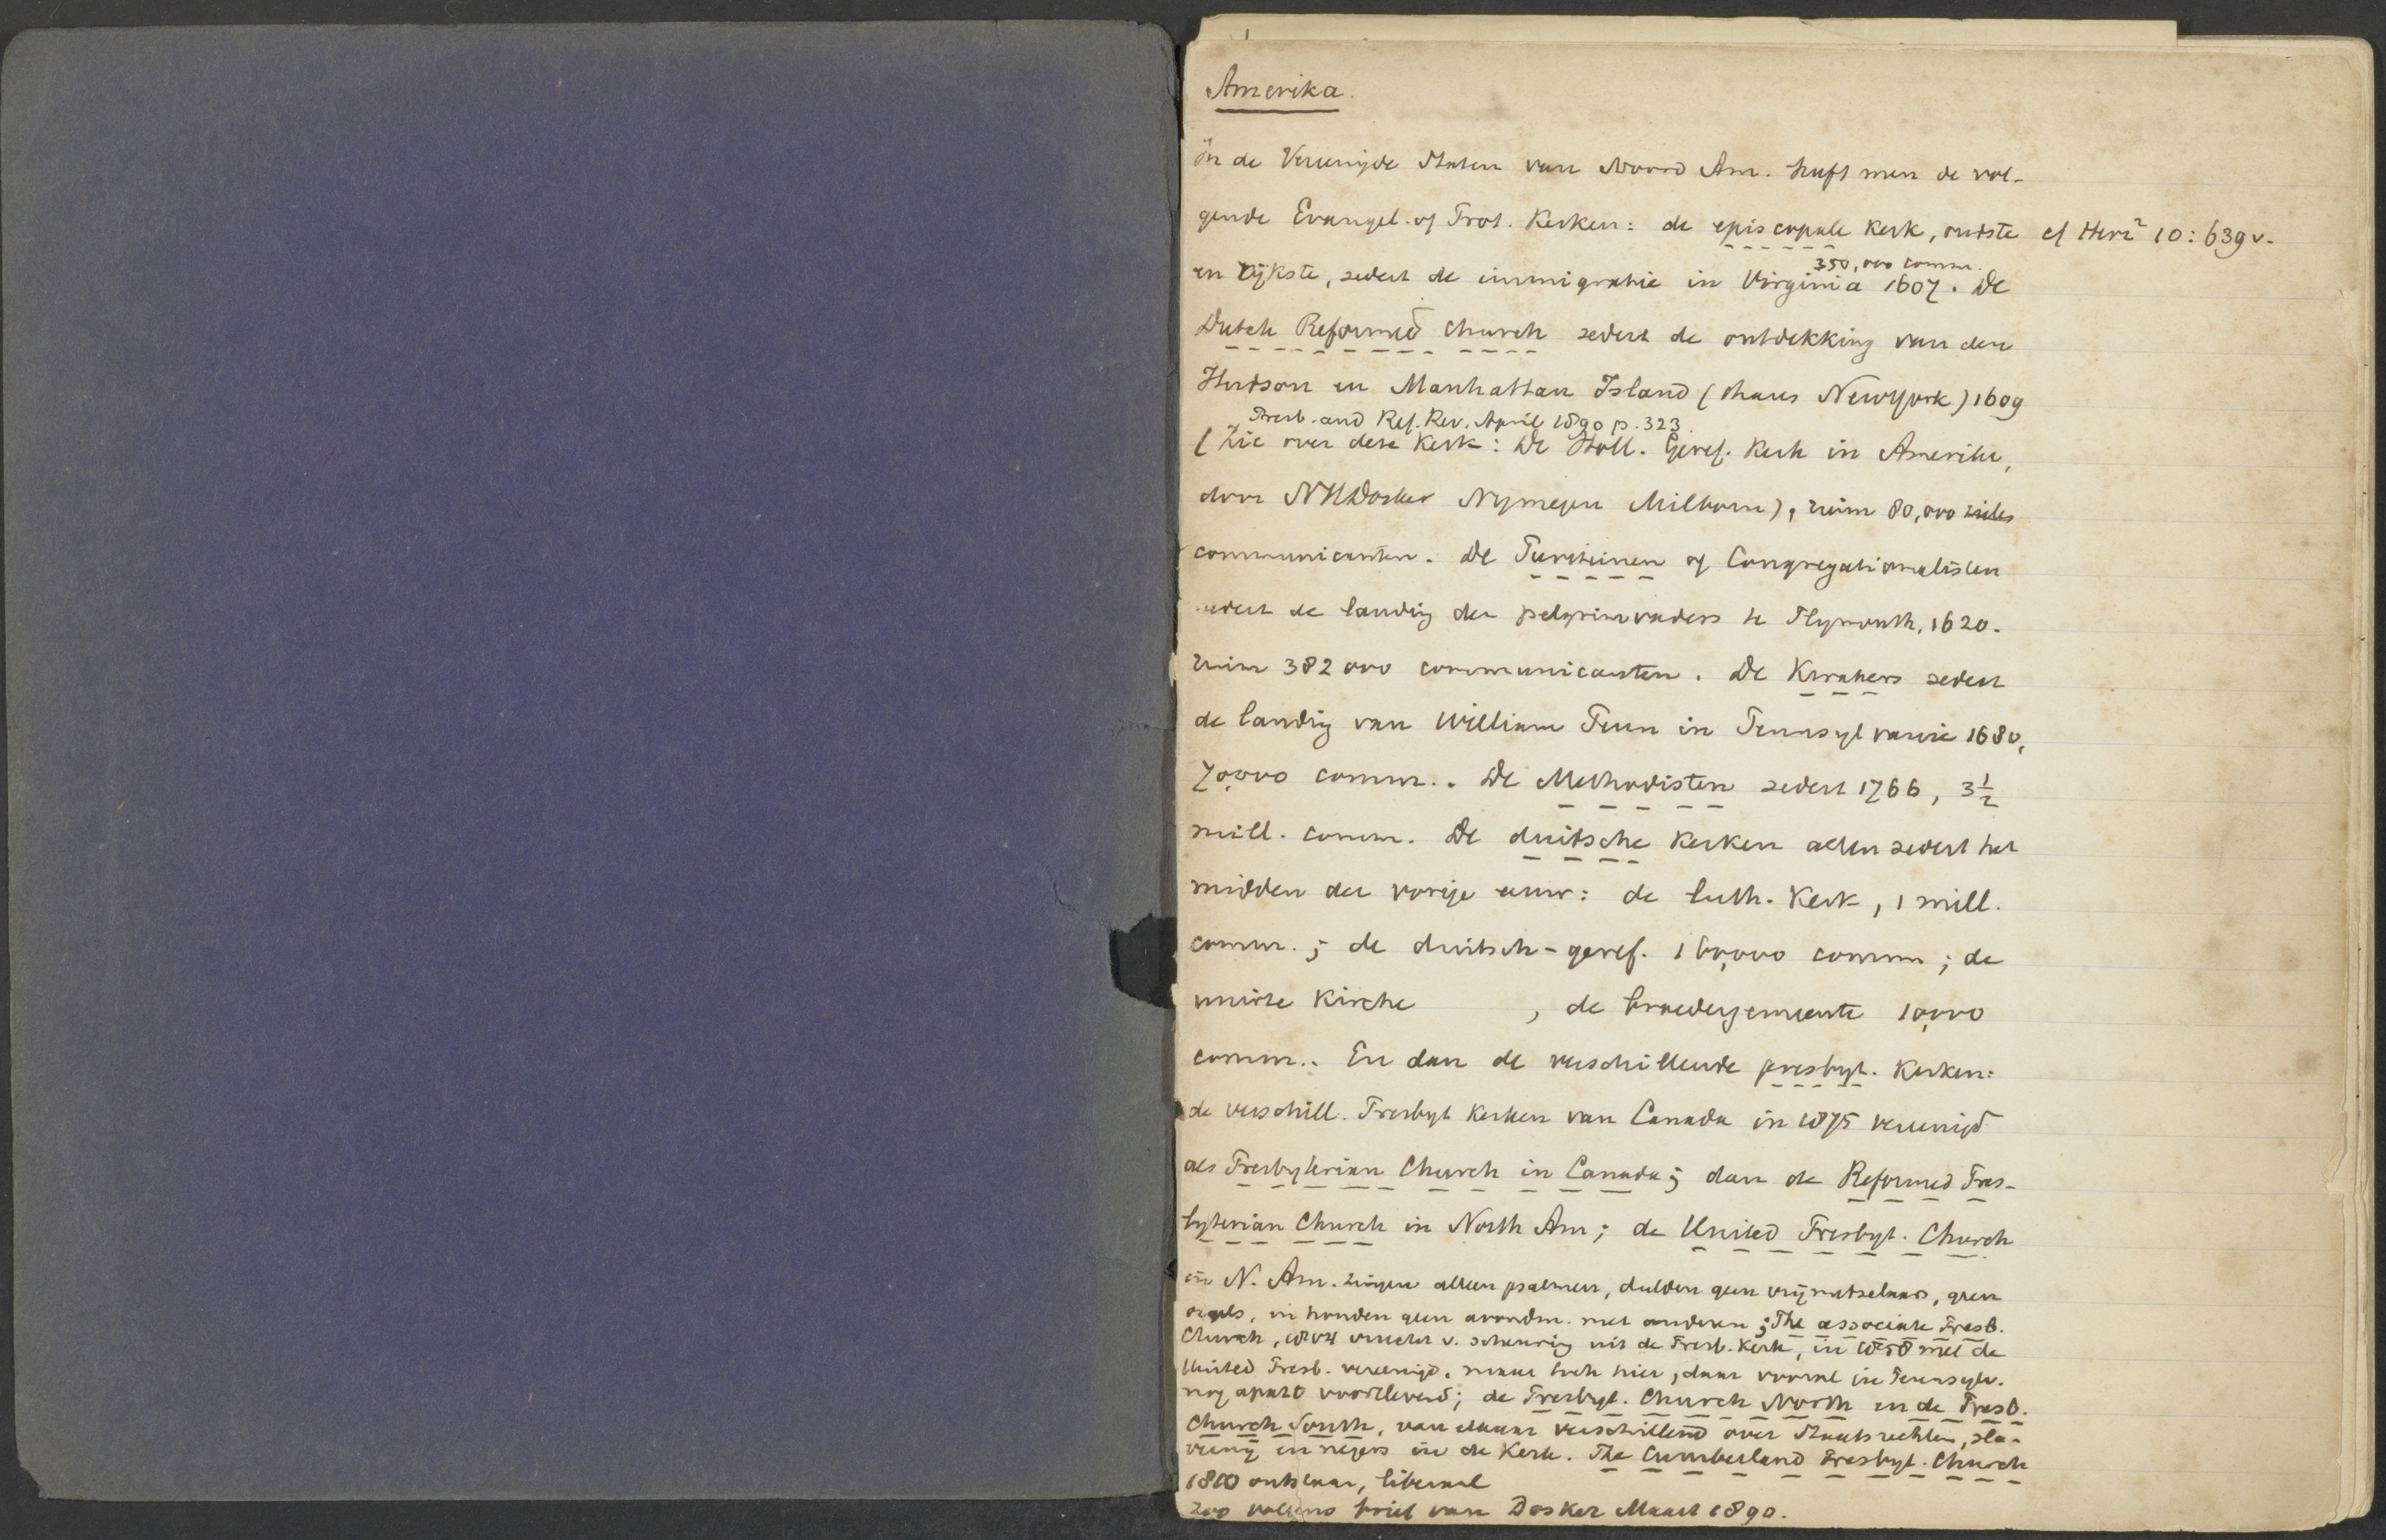 Amerika.
In de Vereenigde Staten van Noord Am. heeft men de vol-
gende Evangel. of Prot. Kerken: de episcopale kerk, oudste cf Herz² 10: 639 v.
350,000 comm.
en rijkste, sedert de immigratie in Virginia 1607. De
Dutch Reformed Church sedert de ontdekking van den
Hudson en Manhattan Island (thans New York) 1609
Presb. and Ref. Rev. April 1890 p. 323.
(Zie over deze Kerk: De Holl. Geref. Kerk in Amerika,
door NHDosker Nymegen Milborn), ruim 80,000 zielen
communicanten. De Puriteinen of Congregationalisten
sedert de landing der pelgrimvaders te Plymouth, 1620.
ruim 382000 communicanten. De Kwakers sedert
de landing van William Penn in Pennsylvanie 1680,
70,000 comm.. De Methodisten sedert 1766, 3½
mill. comm. De duitsche Kerken allen sedert het
midden der vorige eeuw: de luth. Kerk, 1 mill.
comm.; de duitsch-geref. 160,000 comm; de
unirte Kirche , de broedergemeente 10,000
comm.. En dan de verschillende presbyt. Kerken:
de verschill. Presbyt Kerken van Canada in 1875 vereenigd
als Presbyterian Church in Canada; dan de Reformed Pres-
byterian Church in North Am; de United Presbyt. Church
in N. Am. zingen alleen psalmen, dulden geen vrijmetselaars, geen
orgels, en houden geen avondm. met anderen; The associate Presb.
Church, 1804 vrucht v. scheuring uit de Presb. Kerk, in 1858 met de
United Presb. vereenigd, maar toch hier, daar vooral in Pensylv.
nog apart voortlevend; de Presbyt. Church North en de Presb.
Church South, van elkaar verschillend over Staatsrechten, sla-
verny en negers in de Kerk. The Cumberland Presbyt. Church
1810 ontstaan, liberaal
Zoo volgens brief van Dosker Maart 1890.